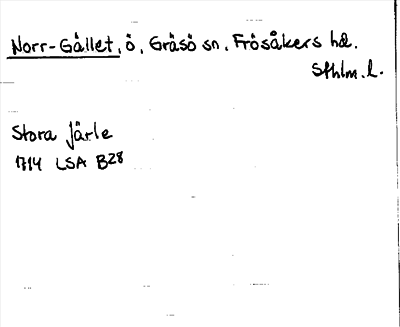 Norr-Gållet, ö, Gräsö sn, Frösåkers hd.
Sthlm. l.
Stora Järle
1714 LSA B28